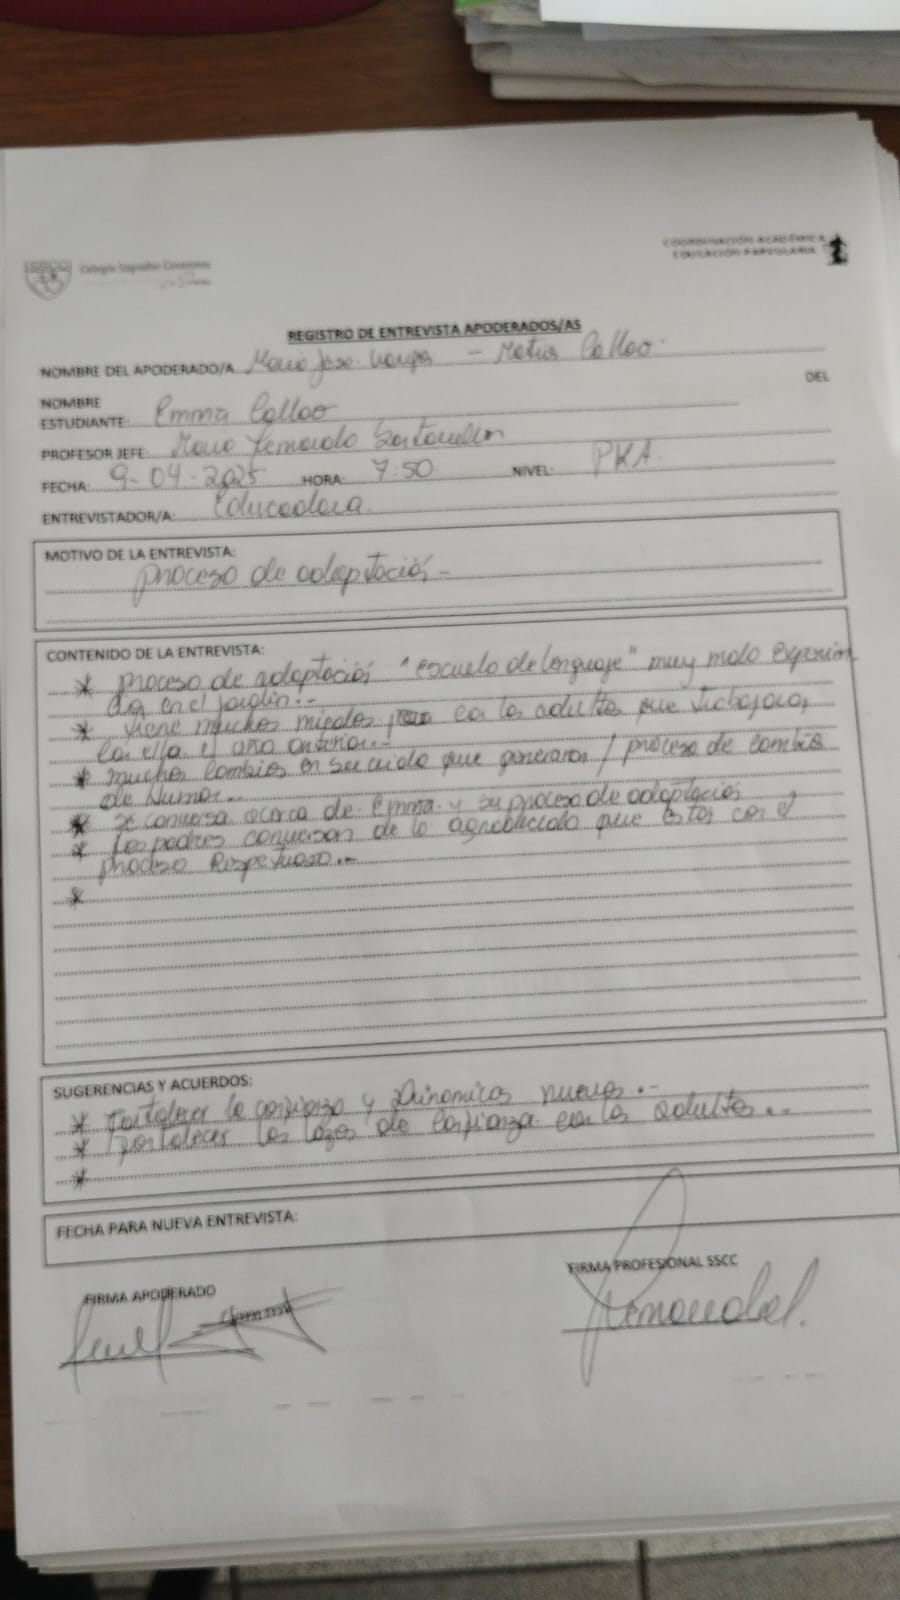 Colegio Sagrados Corazones
La Serena
COORDINACIÓN ACADÉMICA
EDUCACIÓN PARVULARIA
REGISTRO DE ENTREVISTA APODERADOS/AS
NOMBRE DEL APODERADO/A Maria Jose Vargas - Matias Collao.
DEL
NOMBRE
ESTUDIANTE: Emma Collao
PROFESOR JEFE: Maria Fernanda
FECHA: 9-04-2025 HORA: 7:50 NIVEL: PKA.
ENTREVISTADOR/A: Educadora.
MOTIVO DE LA ENTREVISTA:
proceso de adaptación -
CONTENIDO DE LA ENTREVISTA:
* proceso de adaptación "escuela de lenguaje" muy mala experien
cia en el jardin..-
* tiene muchos miedos con los adultos que trabajaron
con ella el año anterior..-
* muchos cambios en su que generaron / proceso de cambio
de humor..
* se conversa acerca de Emma y su proceso de adaptación
* Los padres conversan de lo agradecido que estan con el
proceso Respetuoso..-
*
SUGERENCIAS Y ACUERDOS:
* Fortalecer la confianza y Dinamicas nuevas..-
* Fortalecer los lazos de confianza con los adultos..
*
FECHA PARA NUEVA ENTREVISTA:
FIRMA APODERADO
FIRMA PROFESIONAL SSCC